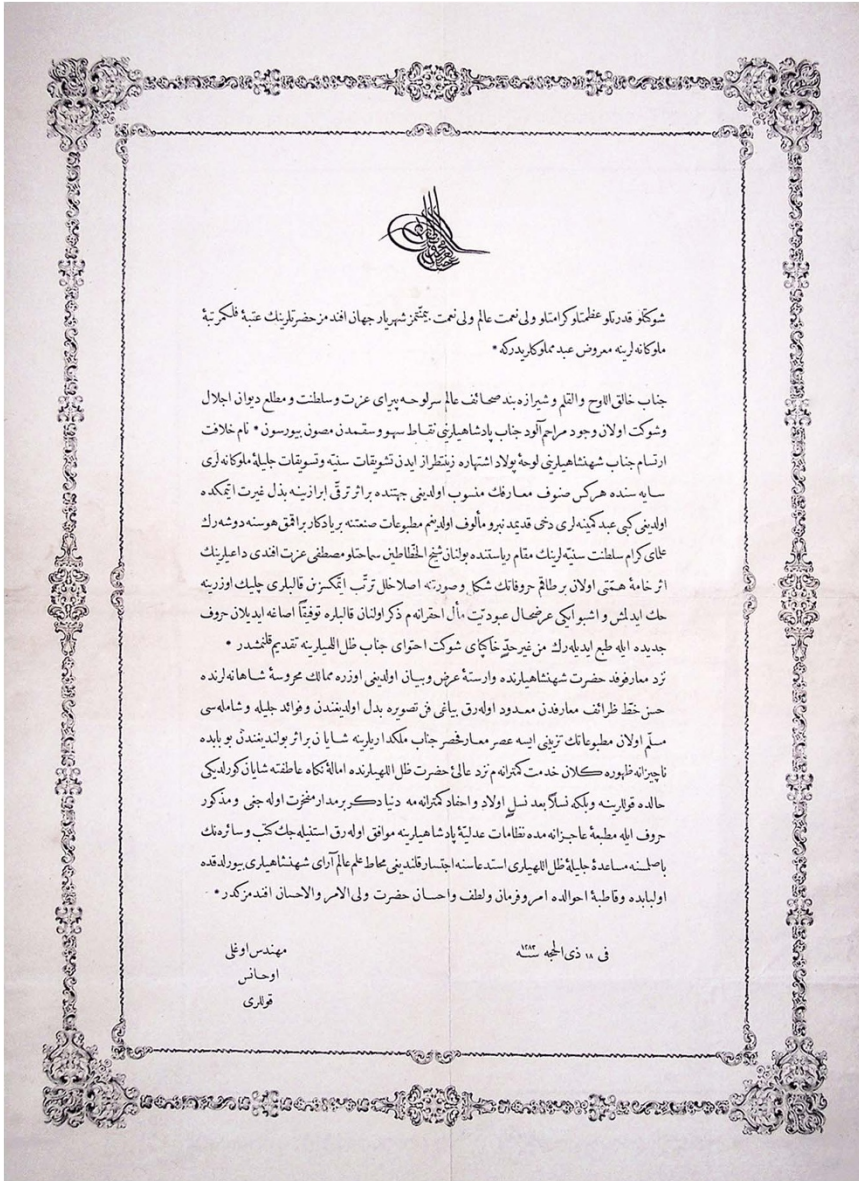 شوكتلو قدرتلو عظمتلو كرامتلو ولى نعمت عالم ولى نعمت بيمنتمز شهريار جهان افندمز حضرتلرينك عتبهٔ فلكمرتبهٔ
ملوكانه‌لرينه معروض عبد مملوكلريدركه *
جناب خالق اللوح والقلم وشيرازه بند صحائف عالم سرلوحه پيراى عزت وسلطنت ومطلع ديوان اجلال
وشوكت اولان وجود مراحم آلود جناب پادشاهيلرينى نقاط سهو وسقمدن مصون بيورسون * نام خلافت
ارتسام جناب شهنشاهيلرينى لوحهٔ پولاد اشتهاره زينتطراز ايدن تشويقات سنيه وتسويقات جليلهٔ ملوكانه‌لرى
سايه سنده هركس صنوف معارفك منسوب اولدينى جهتنده بر اثر ترقى ابرازينه بذل غيرت ايتمكده
اولدينى كبى عبد كمينه‌لرى دخى قديمدنبرو مألوف اولدينم مطبوعات صنعتنه بر يادكار براقمق هوسنه دوشه‌رك
علماى كرام سلطنت سنيه‌لرينك مقام رياستنده بولنان شيخ الخطاطين سماحتلو مصطفى عزت افندى داعيلرينك
اثر خامهٔ همتى اولان بر طاقم حروفاتك شكل وصورتنه اصلا خلل ترتب ايتمكسزين قالبلرى چليك اوزرينه
حك ايدلمش و اشبو ايكى عرضحال عبوديت مأل احقرانه‌م ذكر اولنان قالبلره توفيقاً اصاغه ايديلان حروف
جديده ايله طبع ايديله‌رك من غير حدٍّ خاكپاى شوكت احتواى جناب ظل اللهيلرينه تقديم قلنمشدر *
نزد معارفوفد حضرت شهنشاهيلرنده وارستهٔ عرض وبيان اولدينى اوزره ممالك محروسهٔ شاهانه‌لرنده
حسن خط ظرائف معارفدن معدود اوله‌رق بياغى فن تصويره بدل اولديغندن وفوائد جليله وشامله‌سى
مسلم اولان مطبوعاتك تزيينى ايسه عصر معارفحصر جناب ملكداريلرينه شايان بر اثر بولنديغندن بو بابده
ناچيزانه ظهوره كلان خدمت كمترانه‌م نزد عالىٔ حضرت ظل اللهيلرنده امالهٔ نكاه عاطفته شايان كورلديكى
حالده قوللرينه وبلكه نسلاً بعد نسلٍ اولاد واحفاد كمترانه‌مه دنيا دكر بر مدار مفخرت اوله جنى ومذكور
حروف ايله مطبعهٔ عاجزانه‌مده نظامات عدليهٔ پادشاهيلرينه موافق اوله‌رق استنيله‌جك كتب وسائره‌نك
باصلمسنه مساعدهٔ جليلهٔ ظل اللهيلرى استدعاسنه اجتسار قلندينى محاط علم عالم آراى شهنشاهيلرى بيورلدقده
اولبابده وقاطبهٔ احوالده امر وفرمان ولطف واحسان حضرت ولى الامر والاحسان افندمزكدر *
فى ١٨ ذى الحجه سنه ١٢٨٣
مهندس اوغلى
اوحانس
قوللرى